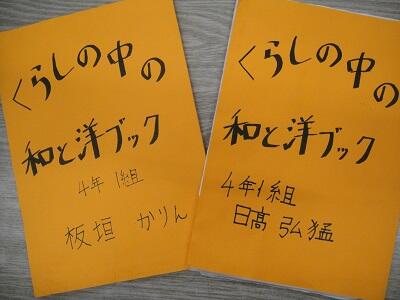 くらしの中の
和と洋ブック
4年1組
板垣 かりん
くらしの中の
和と洋ブック
4年1組
日髙 弘猛